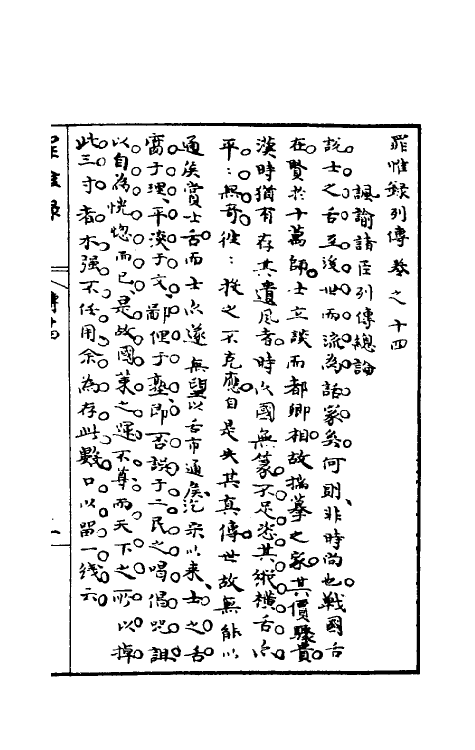 罪惟錄列傳卷之十四
諷諭諸臣列傳總論
說士之舌至後世而流為話家矣何則非時尚也戰國舌
在賢於十萬師士立談而都卿相故揣摹之家其價驟貴
漢時猶有存其遺風者時以國無篡不足恣其縱橫舌亦
平平無奇從我之不克應自是失其真傳世故無能以
通侯賞士舌而士亦遂無望以舌市通侯迄宋以來士之舌
腐于理平淡于文鄙俚于塾即一否誤于二民之唱偈咒詛
以自為恍惚而已是故國策之運不尊而天下之所以掉
此三寸者木强不任用余為存此數口以留一线云